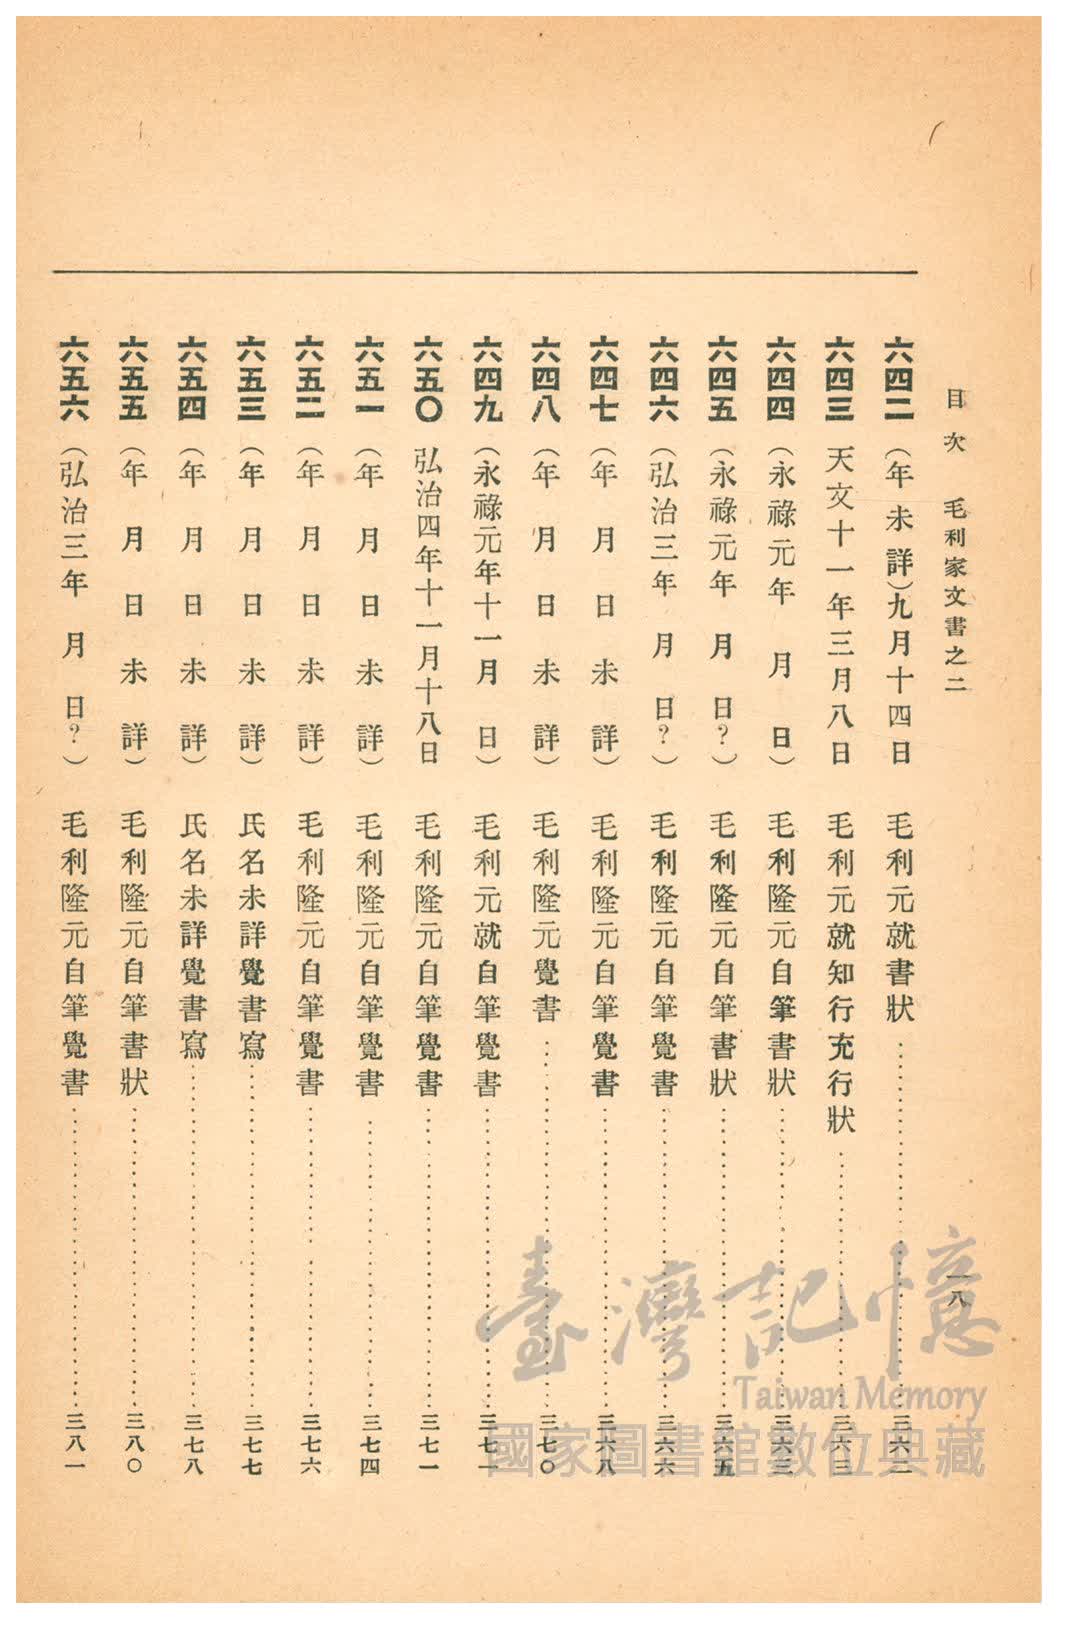 目次　毛利家文書之二　一八
六四二　（年未詳）九月十四日　毛利元就書狀…………三六二
六四三　天文十一年三月八日　毛利元就知行充行狀…………三六三
六四四　（永祿元年　月　日）　毛利隆元自筆書狀…………三六三
六四五　（永祿元年　月　日？）　毛利隆元自筆書狀…………三六五
六四六　（弘治三年　月　日？）　毛利隆元自筆覺書…………三六六
六四七　（年　月　日　未　詳）　毛利隆元自筆覺書…………三六八
六四八　（年　月　日　未　詳）　毛利隆元覺書…………三七〇
六四九　（永祿元年十一月　日）　毛利元就自筆覺書…………三七一
六五〇　弘治四年十一月十八日　毛利隆元自筆覺書…………三七一
六五一　（年　月　日　未　詳）　毛利隆元自筆覺書…………三七四
六五二　（年　月　日　未　詳）　毛利隆元自筆覺書…………三七六
六五三　（年　月　日　未　詳）　氏名未詳覺書寫…………三七七
六五四　（年　月　日　未　詳）　氏名未詳覺書寫…………三七八
六五五　（年　月　日　未　詳）　毛利隆元自筆書狀…………三八〇
六五六　（弘治三年　月　日？）　毛利隆元自筆覺書…………三八一
臺灣記憶
Taiwan Memory
國家圖書館數位典藏